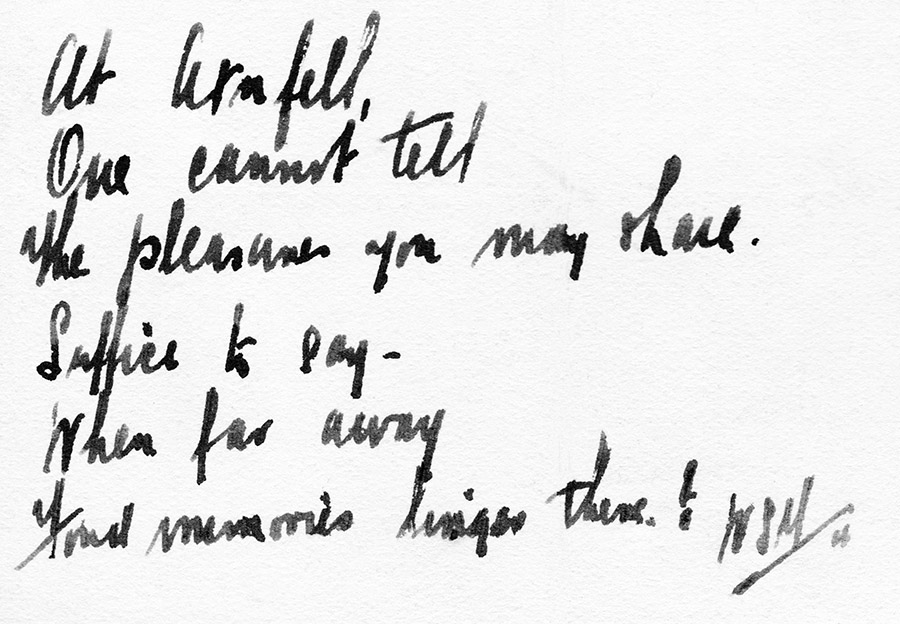 At Arnfell,
One cannot tell
The pleasures you may share.
Suffice to say -
When far away
Fond memories linger there.!